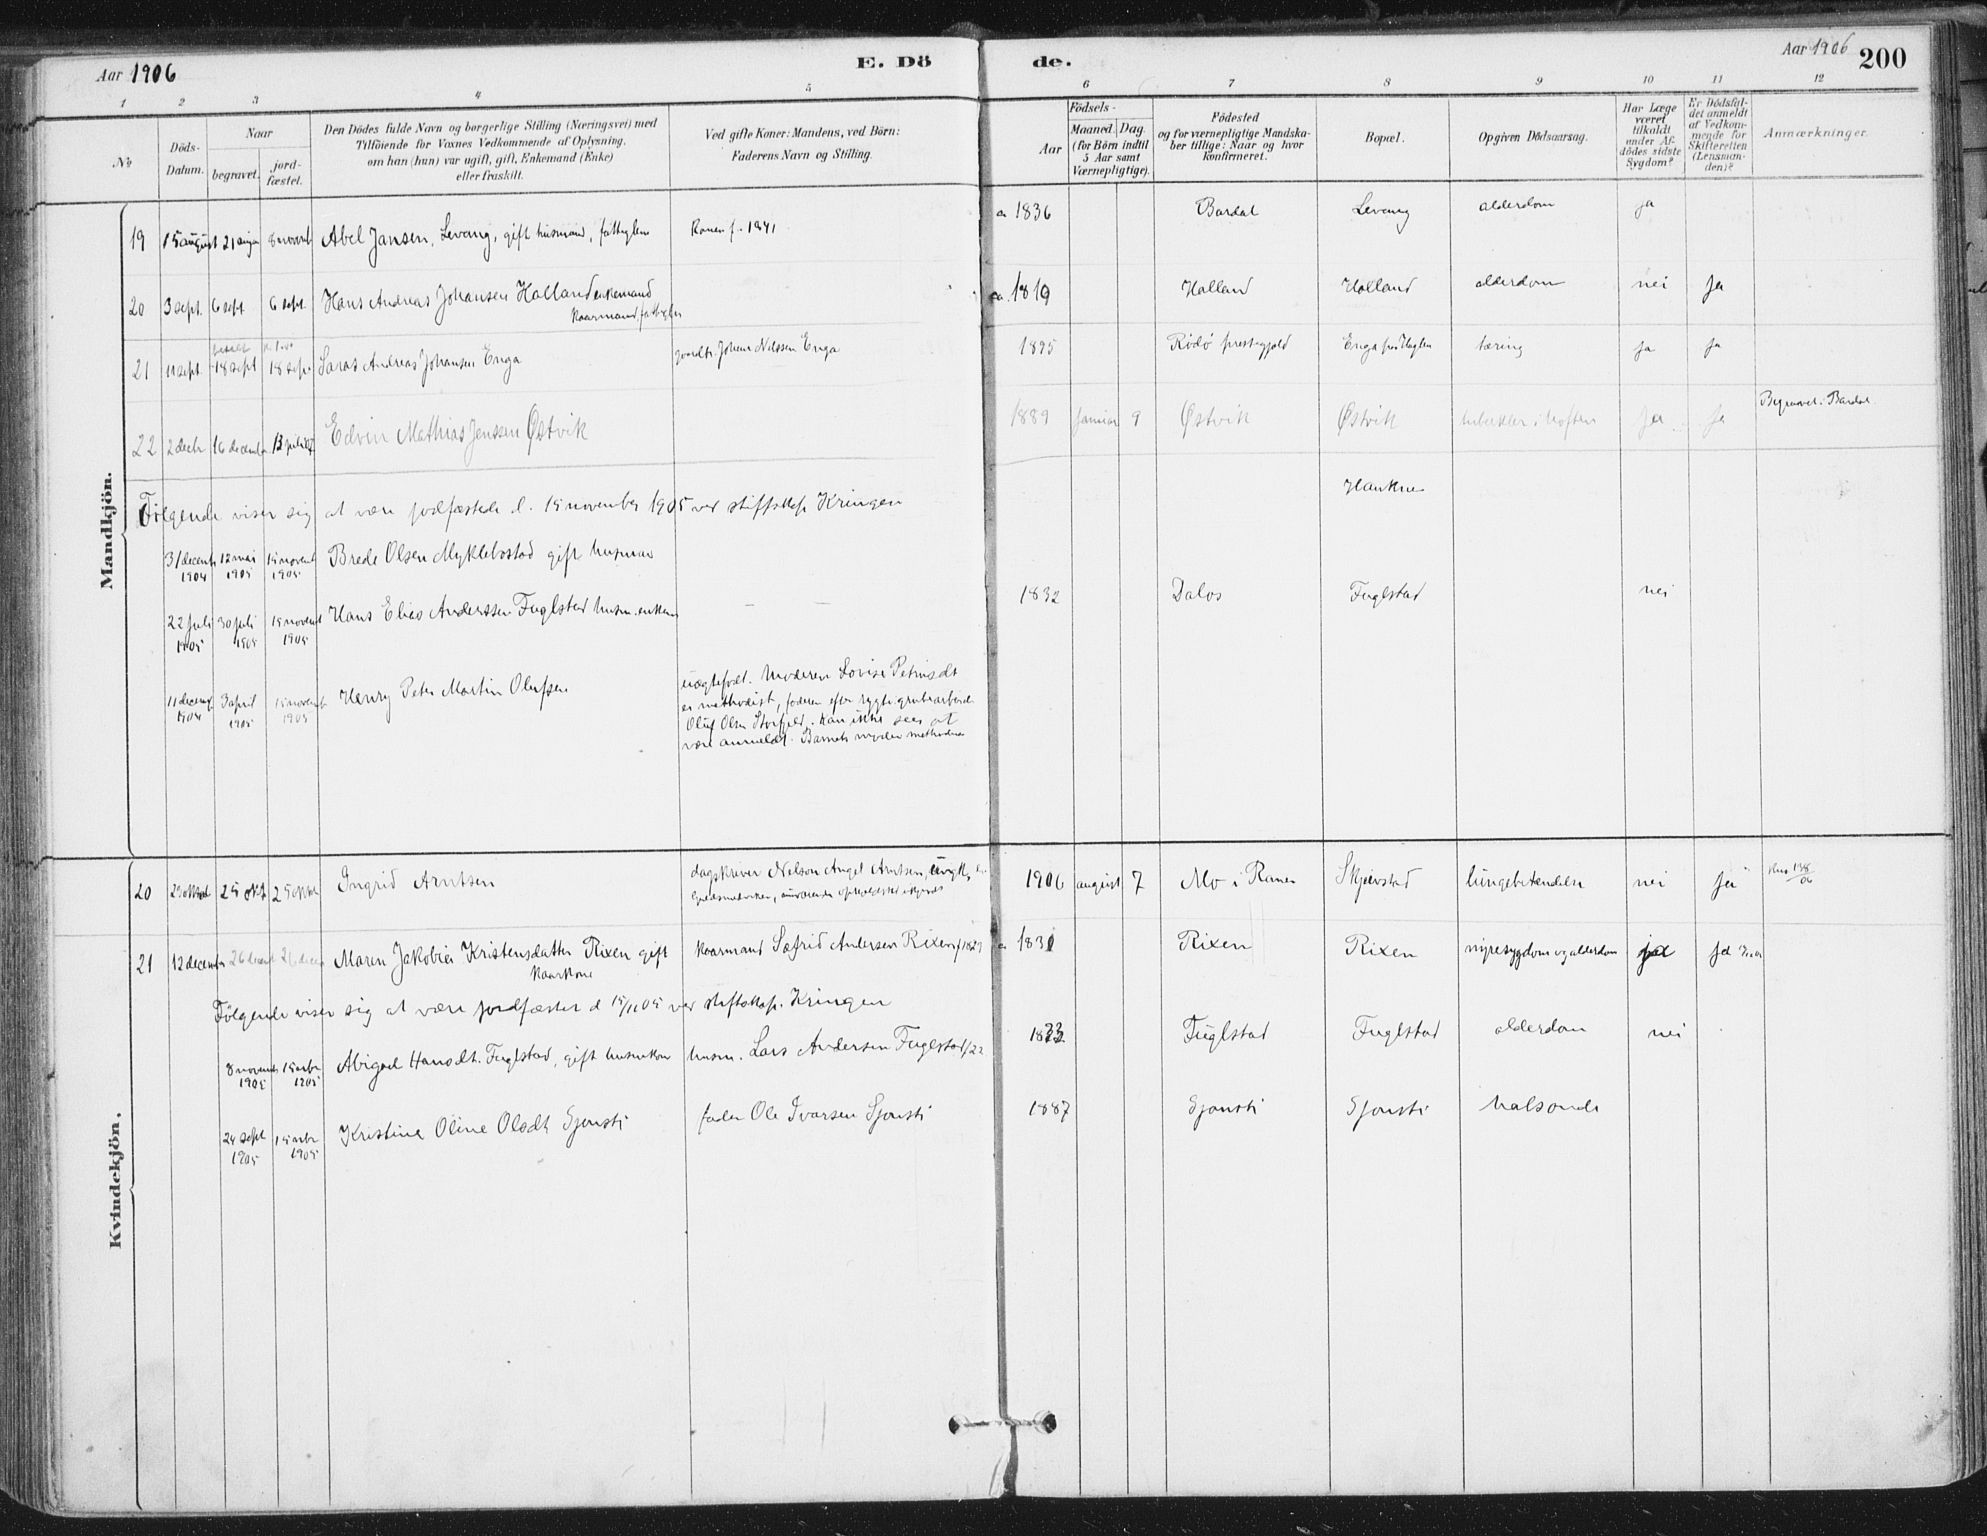 Aar 1906 E. Dö de. Aar 1906 200
1 2 3 4 5 6 7 8 9 10 11 12
No
Döds-Datum.
Naar
begravet.
jord-fæstet.
Den Dödes fulde Navn og borgerlige Stilling (Næringsvei) med
Tilföiende for Voxnes Vedkommende af Oplysning,
om han (hun) var ugift, gift, Enkemand (Enke)
eller fraskilt.
Ved gifte Koner: Mandens, ved Börn:
Faderens Navn og Stilling.
Födsels-
Aar
Maaned. Dag.
(for Børn indtil
5 Aar samt
Værnepligtige).
Födested
og for værnepligtige Mandska-
ber tillige: Naar og hvor
konfirmeret.
Bopæl.
Opgiven Dödsaarsag.
Har Læge
været
tilkaldt
under Af-
dödes sidste
Sygdom?
Er Dödsfal-
det anmeldt
af Vedkom-
mende for
Skifteretten
(Lensman-
den)?
Anmærkninger.
Mandkjön.
19 15 august 21 aug 8 novemb Abel Jansen, Levang, gift husmand, fattiglem Konen f. 1841 1836 Bardal Levang alderdom ja
20 3 sept. 6 sept. 6 sept. Hans Andreas Johansen Holland enkemand ca. 1819 Holland Holland alderdom nei ja
kaarmand fattiglem
21 11 sept. 18 sept 18 sept Andreas Johansen Enga Johans Nilssen Enga 1895 Rödö prestegjeld Enga tæring ja ja
22 2 decbr 16 december 13 juli Edvin Mathias Jenssen Østvik 1889 januar 9 Østvik Østvik tuberkler i hoften ja ja Begravet i Bardal
Følgende viser sig at være jordfæstede d. 15 november 1905 ved stiftskap. Kringen
31 decemb 1904 12 mai 1905 15 novemb 1905 Brede Olsen Myklebostad gift husman
22 juli 1905 30 juli 1905 15 novemb 1905 Hans Elias Anderssen Fuglstad husm. enkem — — 1832 Dalos Fuglstad nei
11 decemb 1904 3 april 1905 15 novemb 1905 Henry Peter Martin Olufsen uægtefødt. Moderen Lovise Petrinsdt
er methodist, faderen efter rygte grubearbeider
Oluf Olsen Storfjeld. Kan ikke sees at
være anmeldt. Barnets moder methodist
Kvindekjön.
20 25 okt 25 oktbr Ingrid Arntsen dagskriver Nelson Angel Arntsen, 1906 august 7 Mo i Ranen Skjævstad lungebetændelse nei ja
21 12 december 26 decemb 26 decem Maren Jakobie Kristensdatter Rixen gift kaarmand Sæfrid Andersen Rixen f. 1829 1831 Rixen Rixen nyresygdom og alderdom ja ja
kaarkone
Følgende viser sig at være jordfæstet d 15/11 05 ved stiftskap. Kringen
8 november 1905 15 nvbr 1905 Abigael Hansdt. Fuglstad, gift husmkone husm. Lars Andersen Fuglstad f/22 1833 Fuglstad Fuglstad alderdom nei
24 sept 1905 15 nvbr 1905 Kristine Oline Olsdt Sjonsti fader Ole Ivarsen Sjonsti 1887 Sjonsti Sjonsti halsonde